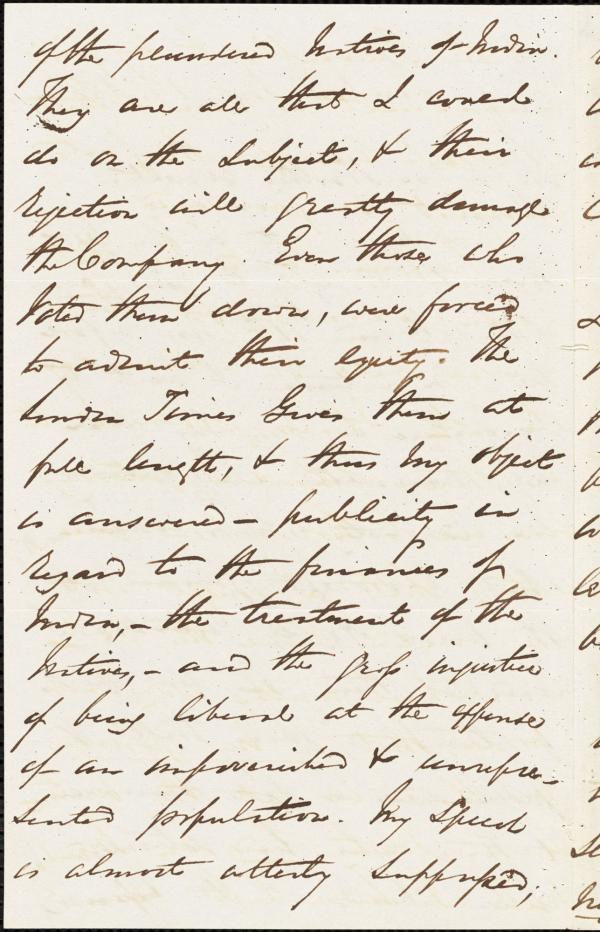 of the plundered Natives of India.
They are all that I could
do on the Subject, & their
rejection will greatly damage
the Company. Even those who
Voted them down, were forced
to admit their equity. The
London Times Gives them at
full length, & thus my object
is answered – publicity in
regard to the finances of
India, – the treatment of the
Natives, – and the gross injustice
of being liberal at the expense
of an impoverished & unrepre-
sented population. My Speech
is almost utterly Suppressed;